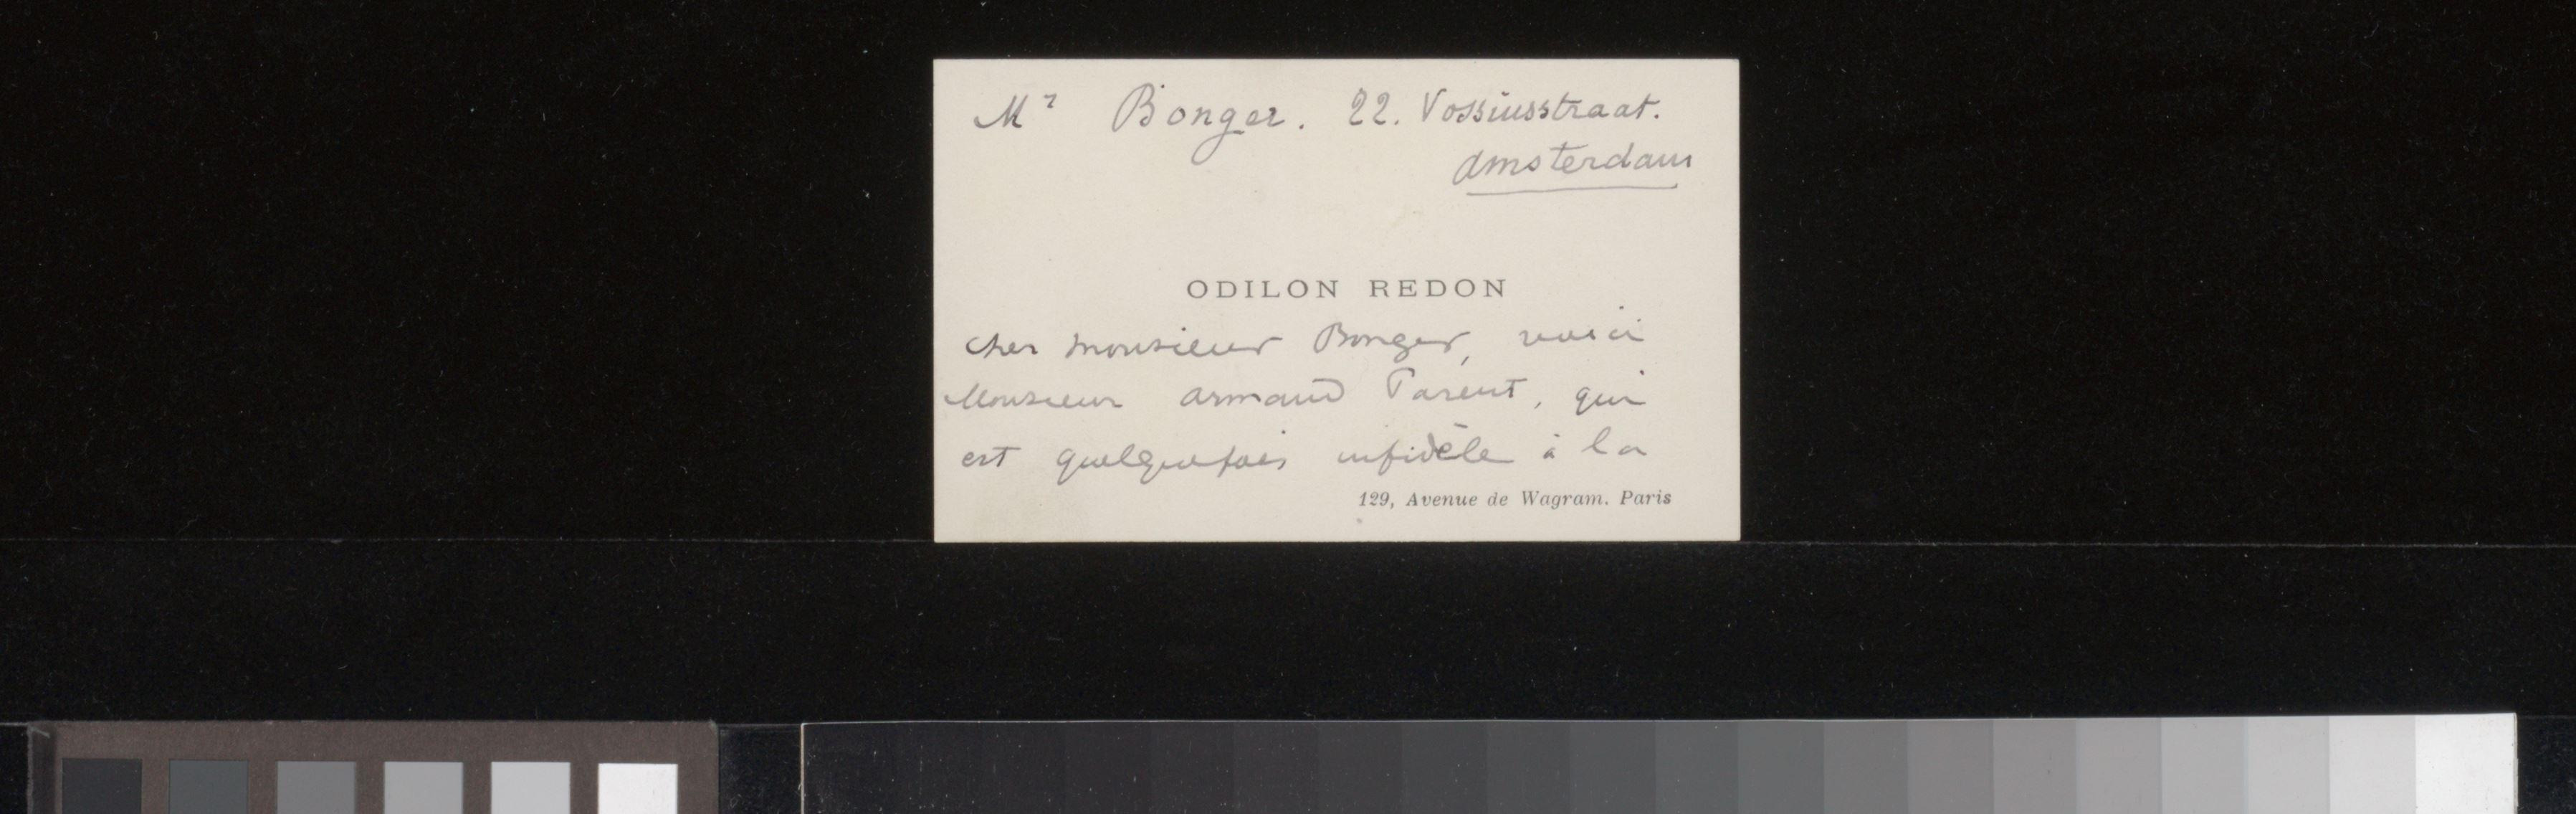 Mr Bonger. 22. Vossiusstraat.
Amsterdam
ODILON REDON
cher monsieur Bonger, voici
Monsieur Armand Parent, qui
est quelquefois infidèle à la
129, Avenue de Wagram. Paris